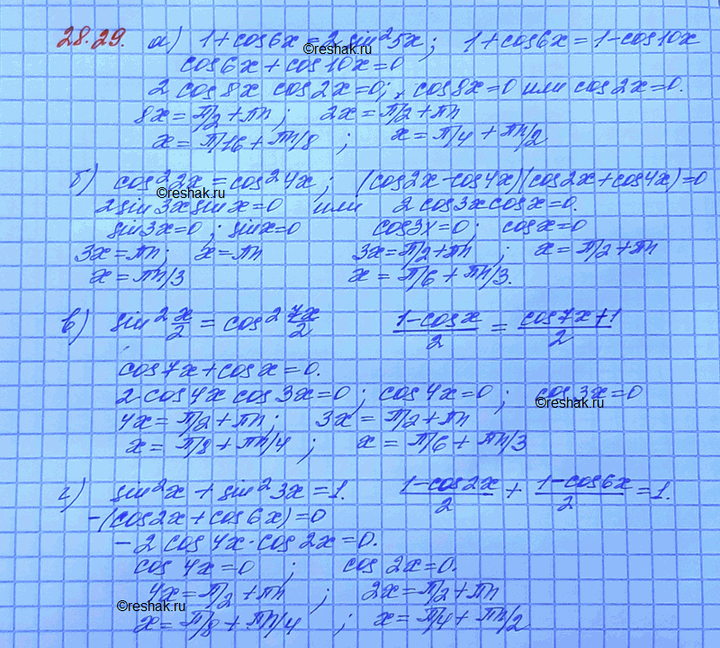 28.29. а) 1+cos6x=2sin²5x; 1+cos6x=1-cos10x
©reshak.ru
cos6x+cos10x=0
2 cos8x cos2x=0; cos8x=0 или cos2x=0.
8x=π/2+πn; 2x=π/2+πn
x=π/16+πn/8 ; x=π/4+πn/2
б) cos²2x=cos²4x; (cos2x-cos4x)(cos2x+cos4x)=0
©reshak.ru
2sin3x sinx=0 или 2 cos3x cosx=0.
sin3x=0; sinx=0 cos3x=0; cosx=0
3x=πn; x=πn 3x=π/2+πn ; x=π/2+πn
x=πn/3 x=π/6+πn/3.
в) sin² x/2 = cos² 7x/2 (1-cosx)/2 = (cos7x+1)/2
cos7x+cosx=0.
2 cos4x cos3x=0; cos4x=0; cos3x=0
©reshak.ru
4x=π/2+πn; 3x=π/2+πn
x=π/8+πn/4 ; x=π/6+πn/3
г) sin²x+sin²3x=1. (1-cos2x)/2 + (1-cos6x)/2 =1.
-(cos2x+cos6x)=0
-2 cos4x·cos2x=0.
cos4x=0 ; cos2x=0.
4x=π/2+πn ; 2x=π/2+πn
©reshak.ru
x=π/8+πn/4 ; x=π/4+πn/2